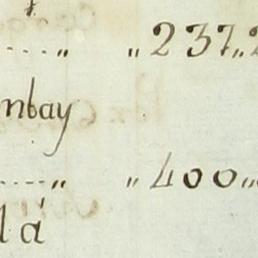 ....„ „237„2
mbay
....„ „400„„
l á